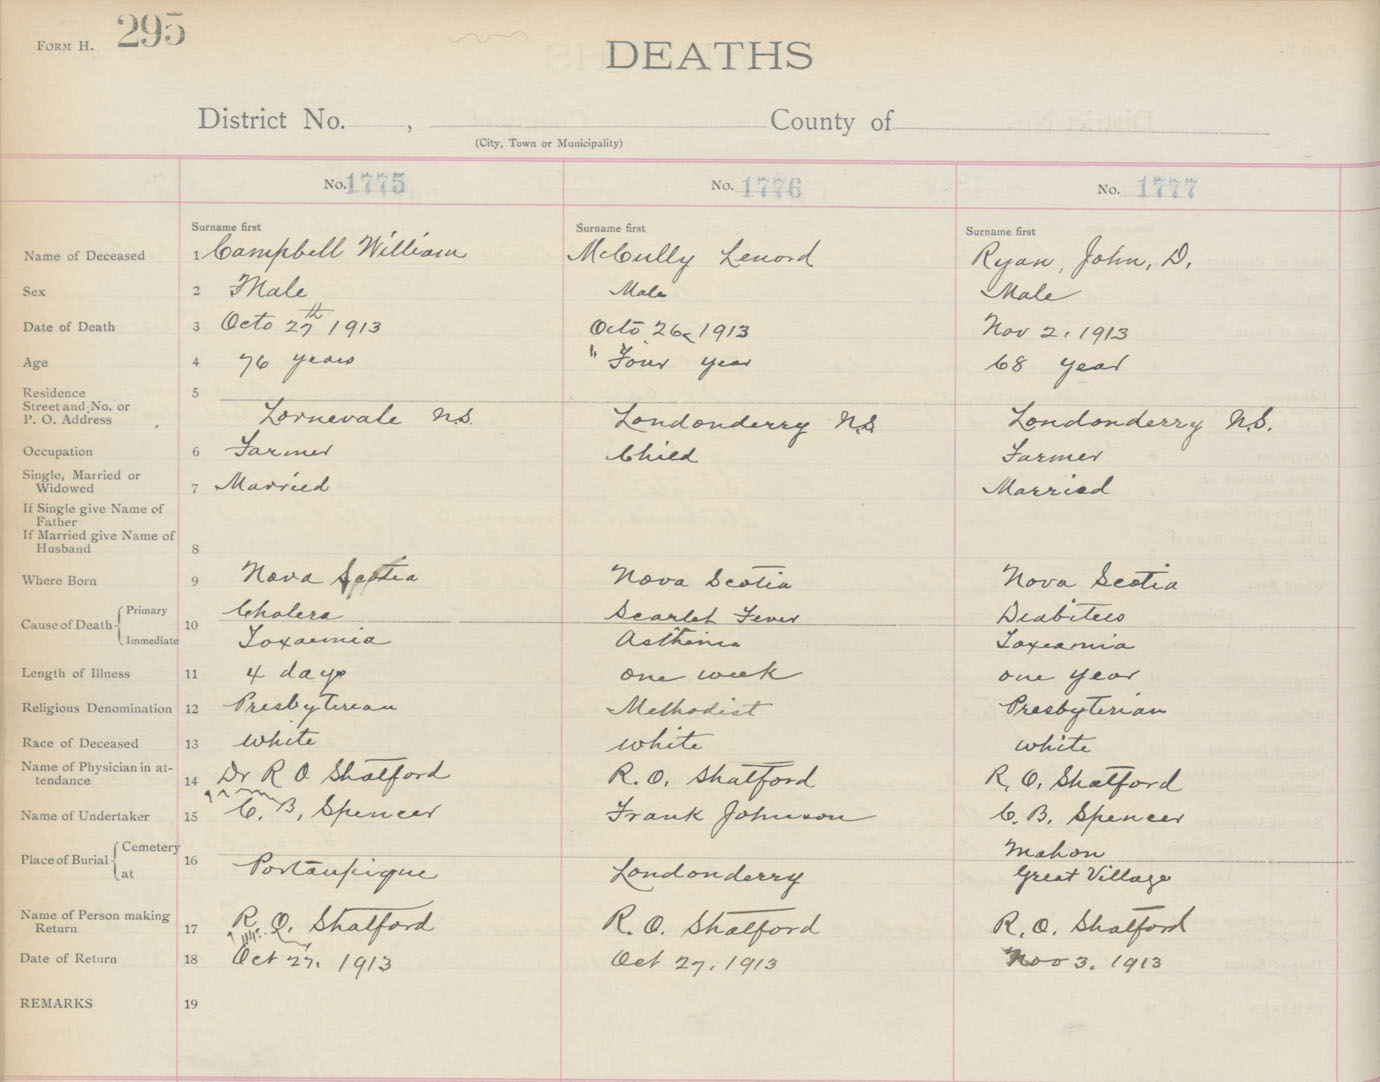 FORM H. 295
DEATHS
District No. , County of
(City, Town or Municipality)
No. 1775 No. 1776 No. 1777
Surname first Surname first Surname first
Name of Deceased 1 Campbell William McCully Lenord Ryan, John, D.
Sex 2 Male Male Male
Date of Death 3 Octo 27th 1913 Octo 26, 1913 Nov 2, 1913
Age 4 76 years " Four year 68 year
Residence 5
Street and No. or
P. O. Address Lornevale N.S. Londonderry N.S. Londonderry N.S.
Occupation 6 Farmer Child Farmer
Single, Married or
Widowed 7 Married Married
If Single give Name of
Father
If Married give Name of
Husband 8
Where Born 9 Nova Scotia Nova Scotia Nova Scotia
Cause of Death Primary 10 Cholera Scarlet Fever Diabites
Immediate Toxaemia Asthenia Toxeamia
Length of Illness 11 4 days one week one year
Religious Denomination 12 Presbyterian Methodist Presbyterian
Race of Deceased 13 white white white
Name of Physician in at-
tendance 14 Dr R O Shatford R. O. Shatford R. O. Shatford
Name of Undertaker 15 C. B. Spencer Frank Johnson C. B. Spencer
Place of Burial Cemetery 16 Mahon
at Portaupique Londonderry Great Village
Name of Person making
Return 17 R. O. Shatford R. O. Shatford R. O. Shatford
Date of Return 18 Oct 27, 1913 Oct 27, 1913 Nov 3. 1913
REMARKS 19